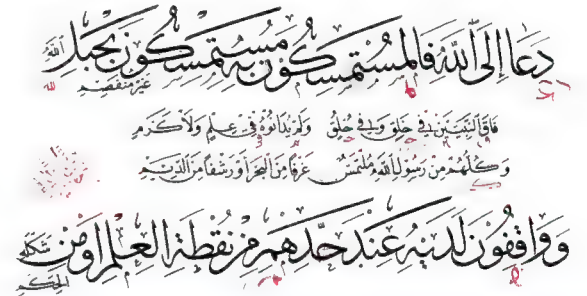 دَعَا إِلَى اللَّهِ فَالْمُسْتَمْسِكُونَ بِهِ مُسْتَمْسِكُونَ بِحَبْلٍ غَيْرِ مُنْفَصِمِ
فَاقَ النَّبِيِّينَ فِي خَلْقٍ وَفِي خُلُقٍ وَلَمْ يُدَانُوهُ فِي عِلْمٍ وَلَا كَرَمِ
وَكُلُّهُمْ مِنْ رَسُولِ اللَّهِ مُلْتَمِسٌ غَرْفًا مِنَ الْبَحْرِ أَوْ رَشْفًا مِنَ الدِّيَمِ
وَوَاقِفُونَ لَدَيْهِ عِنْدَ حَدِّهِمِ مِنْ نُقْطَةِ الْعِلْمِ أَوْ مِنْ شَكْلَةِ الْحِكَمِ